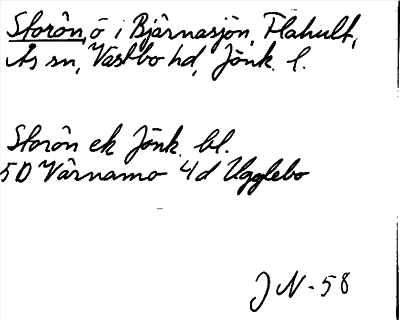 Storön, ö i Bjärnasjön, Flahult,
Ås sn, Västbo hd, Jönk. l.
Storön ek Jönk. bl.
5D Värnamo 4d Ugglebo
JN-58